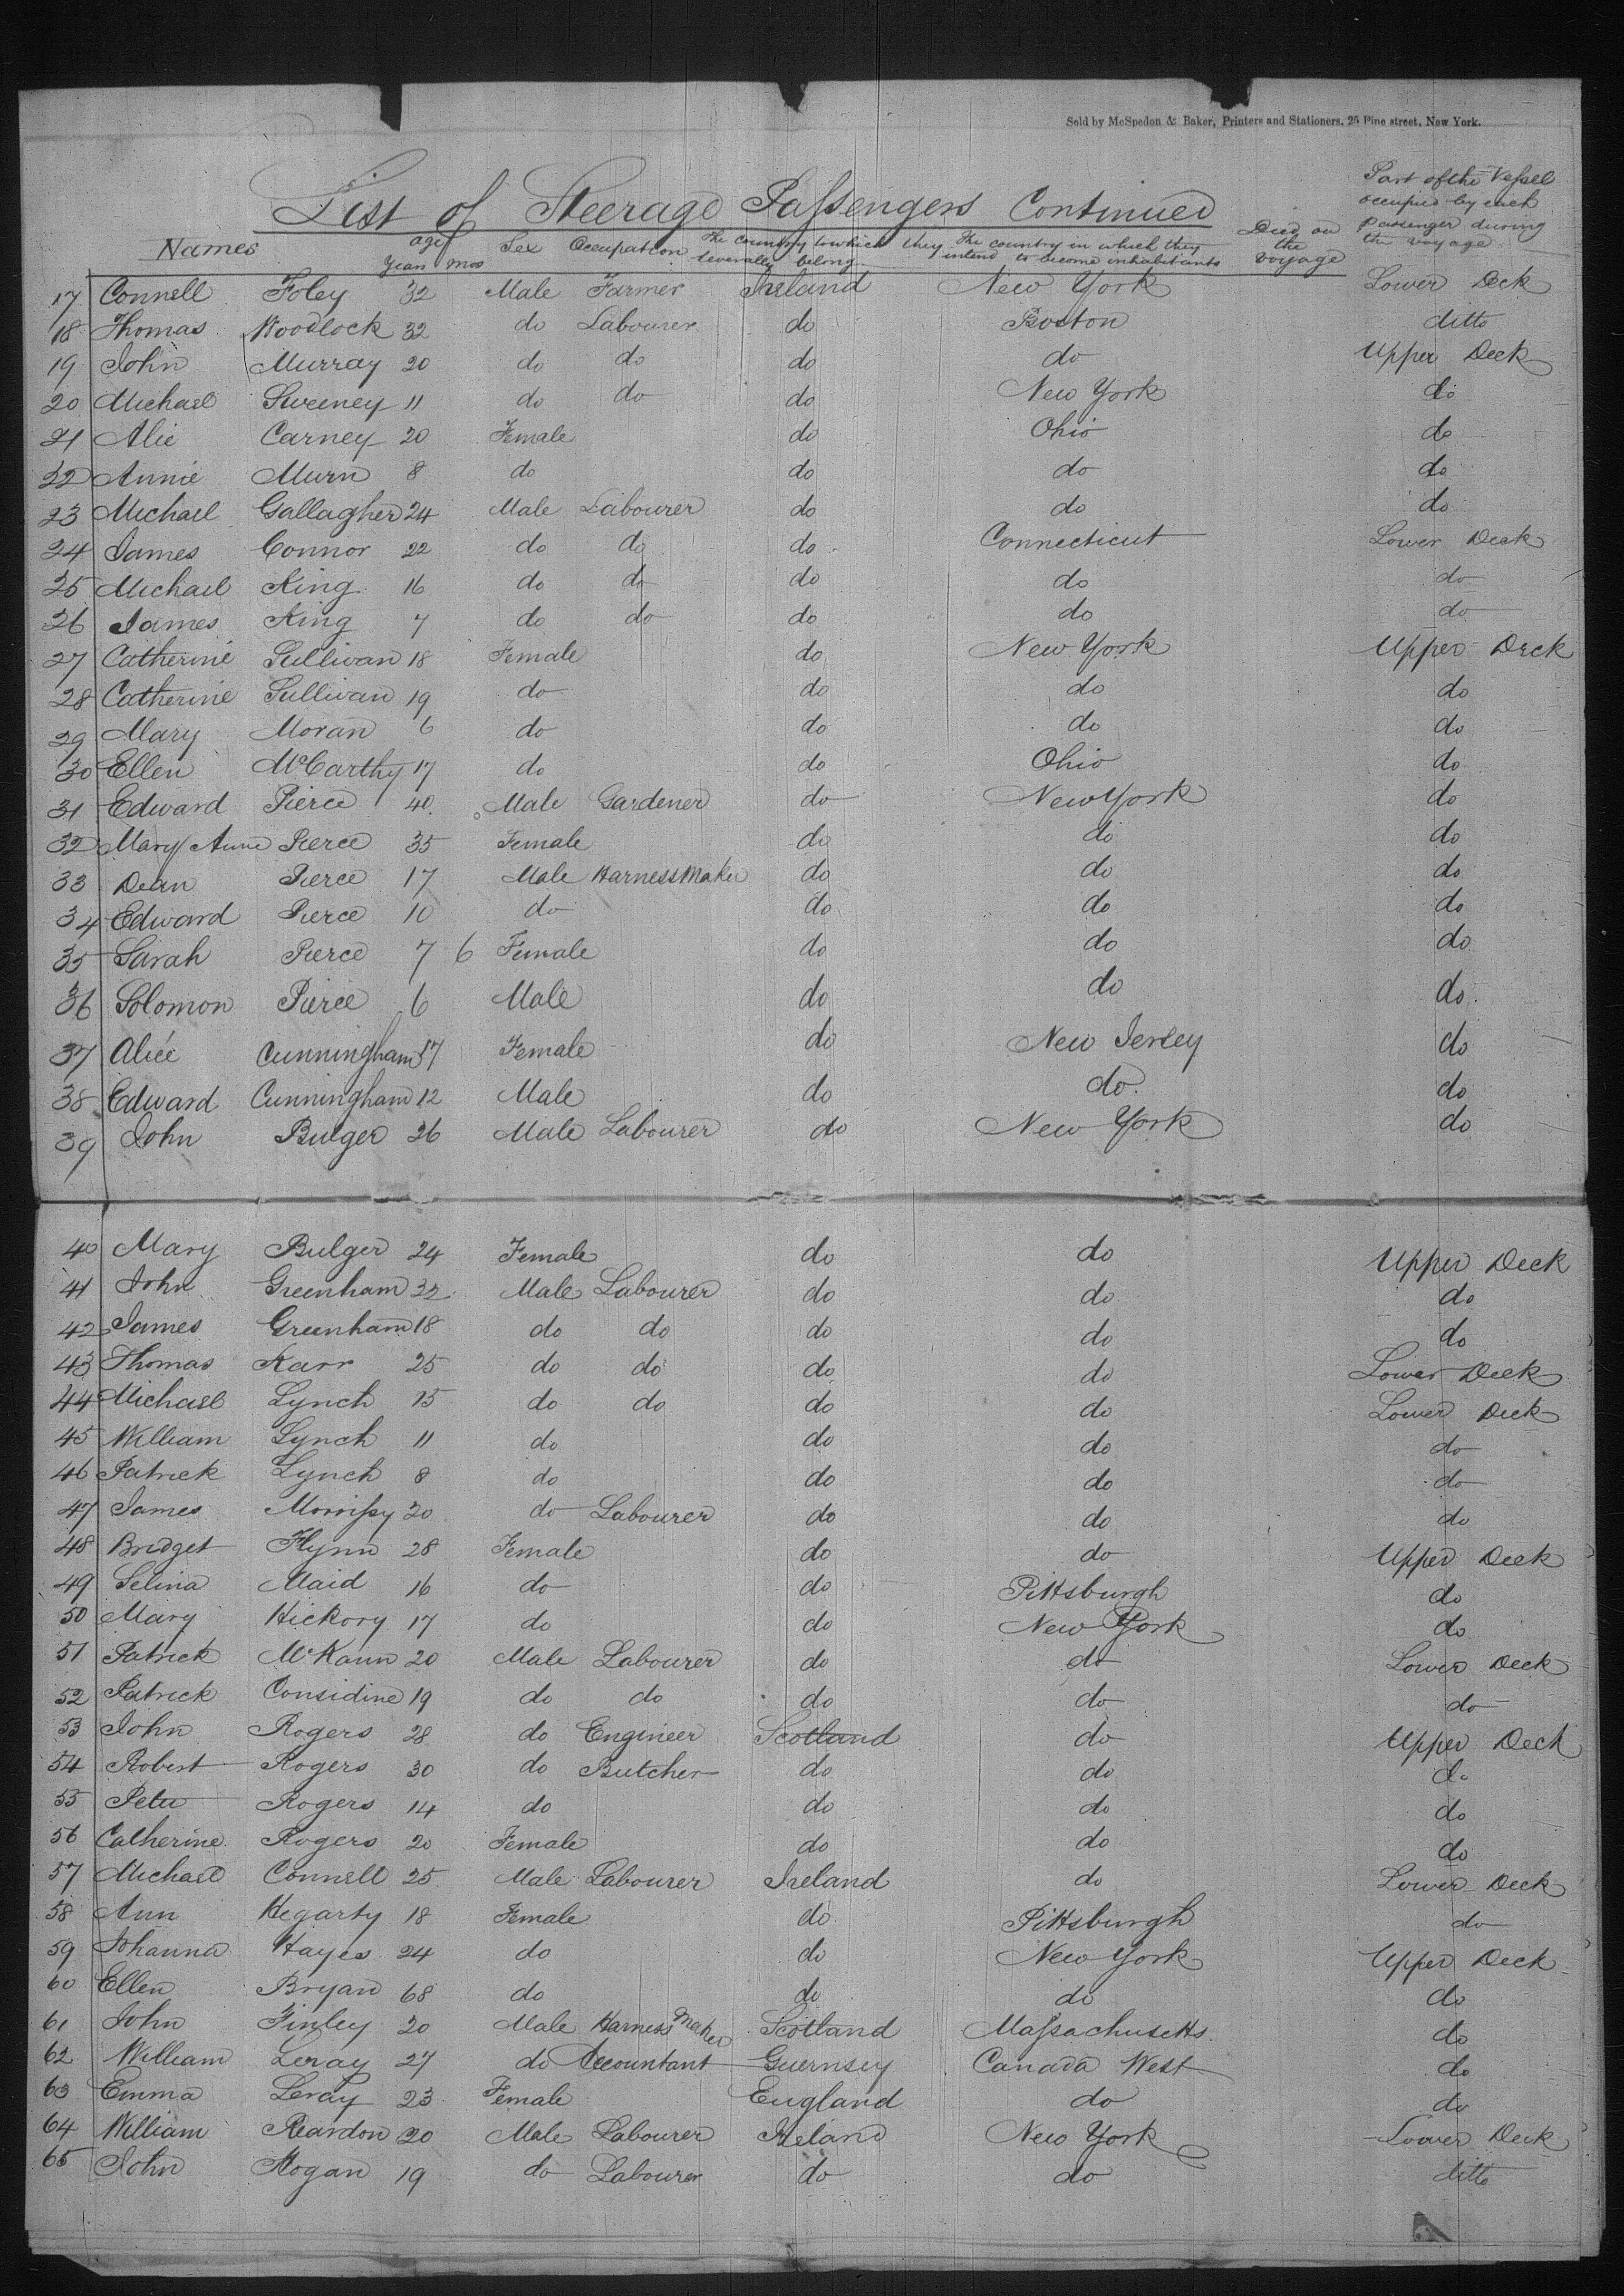 Sold by McSpedon & Baker, Printers and Stationers, 25 Pine street, New York.
List of Steerage Passengers Continued
Names age Years Mos Sex Occupation The country to which they severally belong The country in which they intend to become inhabitants Died on the voyage Part of the Vessel occupied by each passenger during the voyage
17 Connell Foley 32 Male Farmer Ireland New York Lower Deck
18 Thomas Woodlock 32 do Labourer do Boston ditto
19 John Murray 20 do do do do Upper Deck
20 Michael Sweeney 11 do do do New York do
21 Alie Carney 20 Female do Ohio do
22 Annie Murn 8 do do do do
23 Michael Gallagher 24 Male Labourer do do do
24 James Connor 22 do do do Connecticut Lower Deck
25 Michael King 16 do do do do do
26 James King 7 do do do do do
27 Catherine Sullivan 18 Female do New York Upper Deck
28 Catherine Sullivan 19 do do do do
29 Mary Moran 6 do do do do
30 Ellen McCarthy 17 do do Ohio do
31 Edward Pierce 40 Male Gardener do New York do
32 Mary Anne Pierce 35 Female do do do
33 Dean Pierce 17 Male Harness Maker do do do
34 Edward Pierce 10 do do do do
35 Sarah Pierce 7 6 Female do do do
36 Solomon Pierce 6 Male do do do
37 Alice Cunningham 17 Female do New Jersey do
38 Edward Cunningham 12 Male do do do
39 John Bulger 26 Male Labourer do New York do
40 Mary Bulger 24 Female do do Upper Deck
41 John Greenham 22 Male Labourer do do do
42 James Greenham 18 do do do do do
43 Thomas Karr 25 do do do do Lower Deck
44 Michael Lynch 15 do do do do Lower Deck
45 William Lynch 11 do do do do
46 Patrick Lynch 8 do do do do
47 James Morrissy 20 do Labourer do do do
48 Bridget Flynn 28 Female do do Upper Deck
49 Selina Maid 16 do do Pittsburgh do
50 Mary Hickory 17 do do New York do
51 Patrick McKann 20 Male Labourer do do Lower Deck
52 Patrick Considine 19 do do do do do
53 John Rogers 28 do Engineer Scotland do Upper Deck
54 Robert Rogers 30 do Butcher do do do
55 Peter Rogers 14 do do do do
56 Catherine Rogers 20 Female do do do
57 Michael Connell 25 Male Labourer Ireland do Lower Deck
58 Ann Hegarty 18 Female do Pittsburgh do
59 Johanna Hayes 24 do do New York Upper Deck
60 Ellen Bryan 68 do do do do
61 John Finley 20 Male Harness Maker Scotland Massachusetts do
62 William Leray 27 do Accountant Guernsey Canada West do
63 Emma Leray 23 Female England do do
64 William Reardon 20 Male Labourer Ireland New York Lower Deck
65 John Hogan 19 do Labourer do do ditto